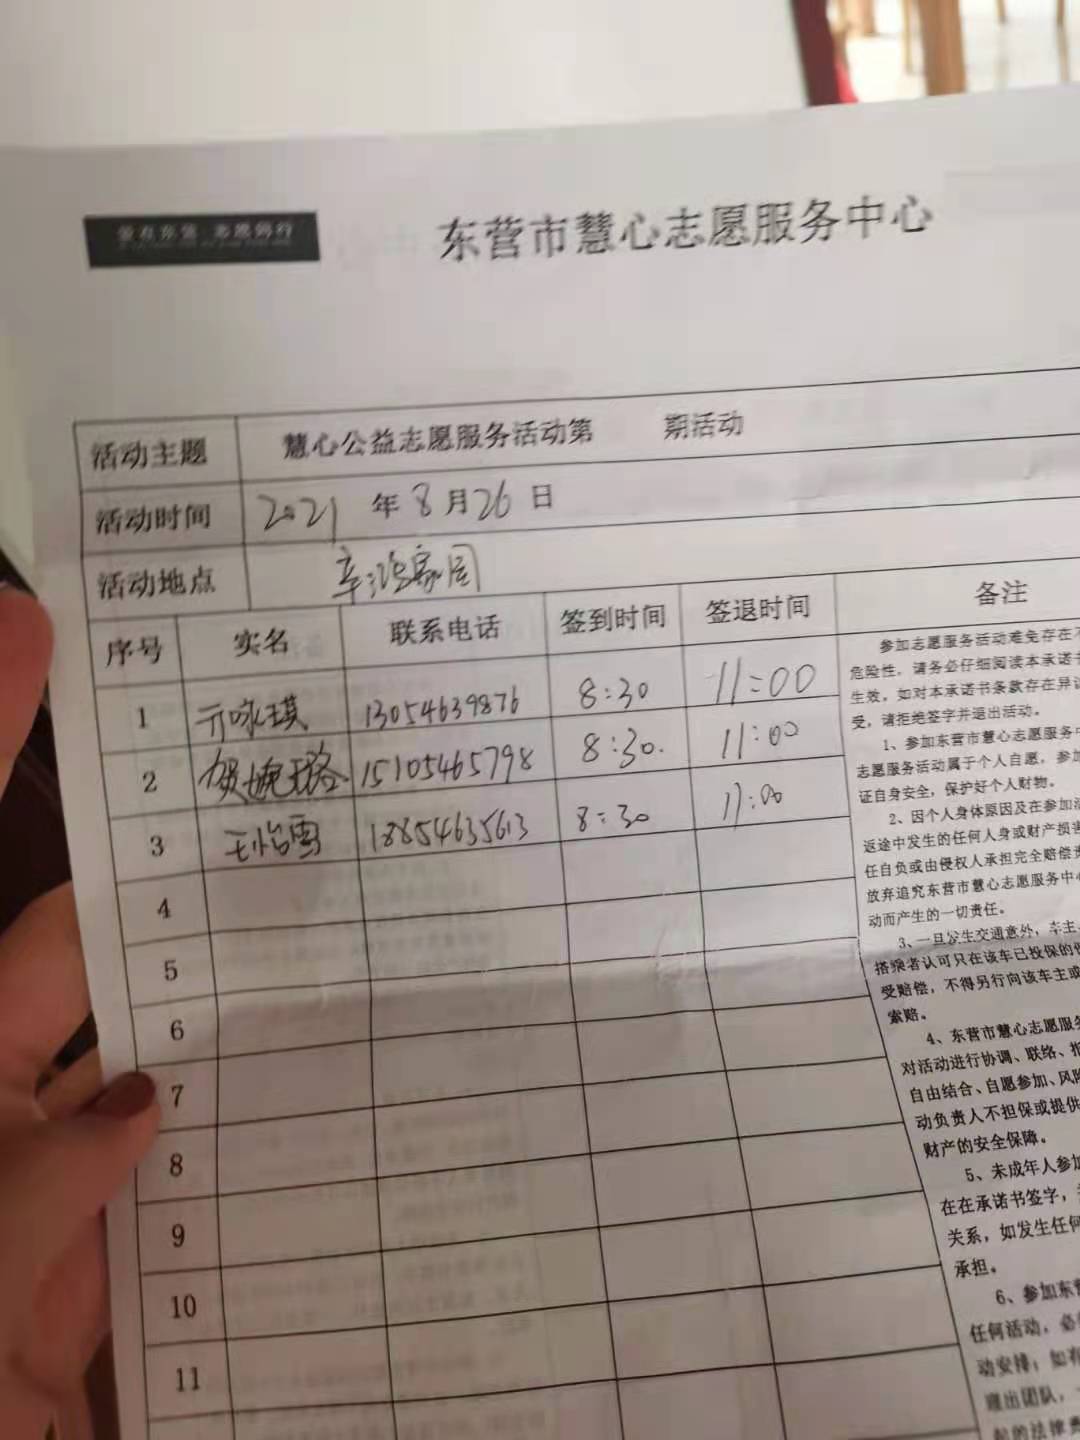 爱在东营 志愿同行
东营市慧心志愿服务中心
活动主题 慧心公益志愿服务活动第 期活动
活动时间 2021 年 8 月 26 日
活动地点 辛鸿家园
序号 实名 联系电话 签到时间 签退时间 备注
1 亓咏琪 13054639876 8:30 11:00
2 贺婉璐 15105465798 8:30. 11:00
3 王怡雪 18854635613 8:30 11:00
4
5
6
7
8
9
10
11
参加志愿服务活动难免存在
危险性,请务必仔细阅读本承诺书
生效,如对本承诺书条款存在异议
受,请拒绝签字并退出活动。
1、参加东营市慧心志愿服务中
志愿服务活动属于个人自愿,参加
证自身安全,保护好个人财物。
2、因个人身体原因及在参加活
返途中发生的任何人身或财产损害
任自负或由侵权人承担完全赔偿责
放弃追究东营市慧心志愿服务中心
动而产生的一切责任。
3、一旦发生交通意外,车主、
搭乘者认可只在该车已投保的
受赔偿,不得另行向该车主或
索赔。
4、东营市慧心志愿服务
对活动进行协调、联络、
自由结合、自愿参加、风险
动负责人不担保或提供
财产的安全保障。
5、未成年人参加
在在承诺书签字,
关系,如发生任何
承担。
6、参加东营
任何活动,必
动安排;如有
理出团队,
起的法律责